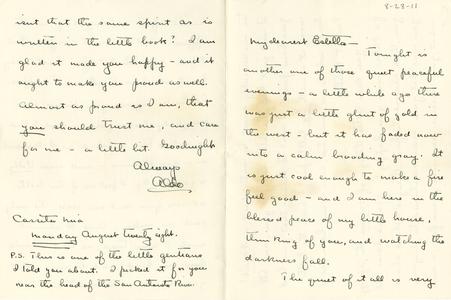 isnt that the same spirit as is
written in the little book? I am
glad it made you happy - and it
ought to make you proud as well.
Almost as proud as I am, that
you should trust me, and care
for me - a little bit. Goodnight
Always
Aldo
Casita mia
Monday August twenty eight.
P.S. This is one of the little gentians
I told you about. I picked it for you
near the head of the San Antonio River.
8-28-11
My dearest Estella -
Tonight is
another one of those quiet peaceful
evenings - a little while ago there
was just a little glint of gold in
the west - but it has faded now
into a calm brooding gray. It
is just cool enough to make a fire
feel good - and I am here in the
blessed peace of my little house,
thinking of you, and watching the
darkness fall.
The quiet of it all is very